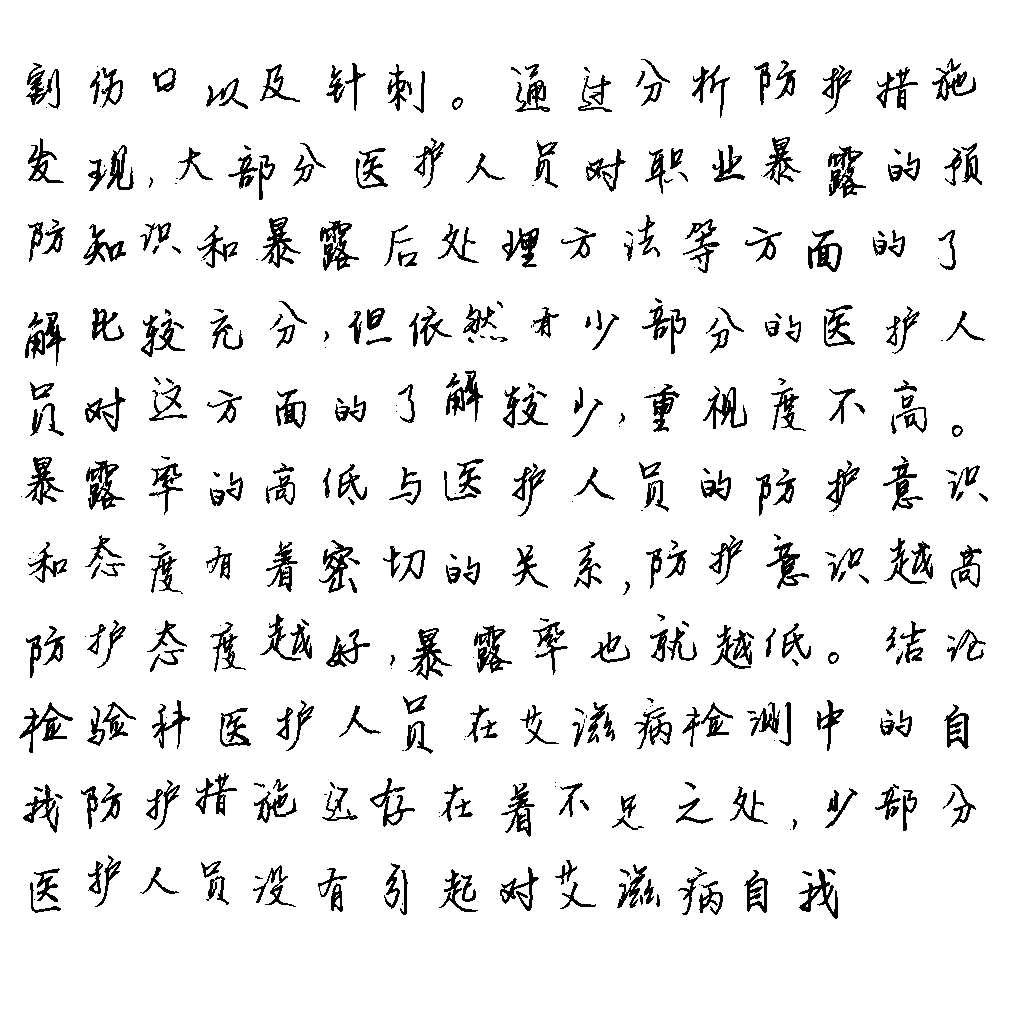 割伤口以及针刺。通过分析防护措施
发现,大部分医护人员对职业暴露的预
防知识和暴露后处理方法等方面的了
解比较充分,但依然有少部分的医护人
员对这方面的了解较少,重视度不高。
暴露率的高低与医护人员的防护意识
和态度有着密切的关系,防护意识越高
防护态度越好,暴露率也就越低。结论
检验科医护人员在艾滋病检测中的自
我防护措施还存在着不足之处,少部分
医护人员没有引起对艾滋病自我